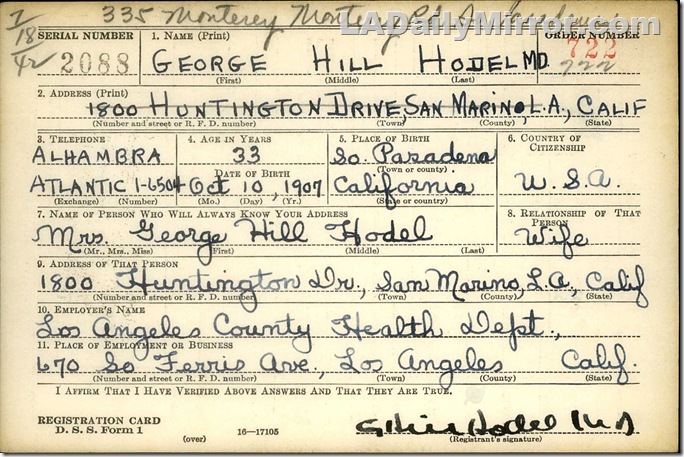 7/18/42 335 Monterey
LADailyMirror.com
SERIAL NUMBER 1. NAME (Print) ORDER NUMBER
2088 GEORGE HILL HODEL MD. 722
(First) (Middle) (Last) 722
2. ADDRESS (Print)
1800 HUNTINGTON DRIVE, SAN MARINO, L.A., CALIF
(Number and street or R. F. D. number) (Town) (County) (State)
3. TELEPHONE 4. AGE IN YEARS 5. PLACE OF BIRTH 6. COUNTRY OF CITIZENSHIP
ALHAMBRA 33 So. Pasadena
DATE OF BIRTH (Town or county)
ATLANTIC 1-6504 Oct 10, 1907 California U.S.A.
(Exchange) (Number) (Mo.) (Day) (Yr.) (State or country)
7. NAME OF PERSON WHO WILL ALWAYS KNOW YOUR ADDRESS 8. RELATIONSHIP OF THAT PERSON
Mrs. George Hill Hodel Wife
(Mr., Mrs., Miss) (First) (Middle) (Last)
9. ADDRESS OF THAT PERSON
1800 Huntington Dr., San Marino, L.A., Calif
(Number and street or R. F. D. number) (Town) (County) (State)
10. EMPLOYER'S NAME
Los Angeles County Health Dept.,
11. PLACE OF EMPLOYMENT OR BUSINESS
670 So Ferris Ave., Los Angeles Calif.
(Number and street or R. F. D. number) (Town) (County) (State)
I AFFIRM THAT I HAVE VERIFIED ABOVE ANSWERS AND THAT THEY ARE TRUE.
REGISTRATION CARD G Hill Hodel MD
D. S. S. Form 1 (over) 16—17105 (Registrant's signature)